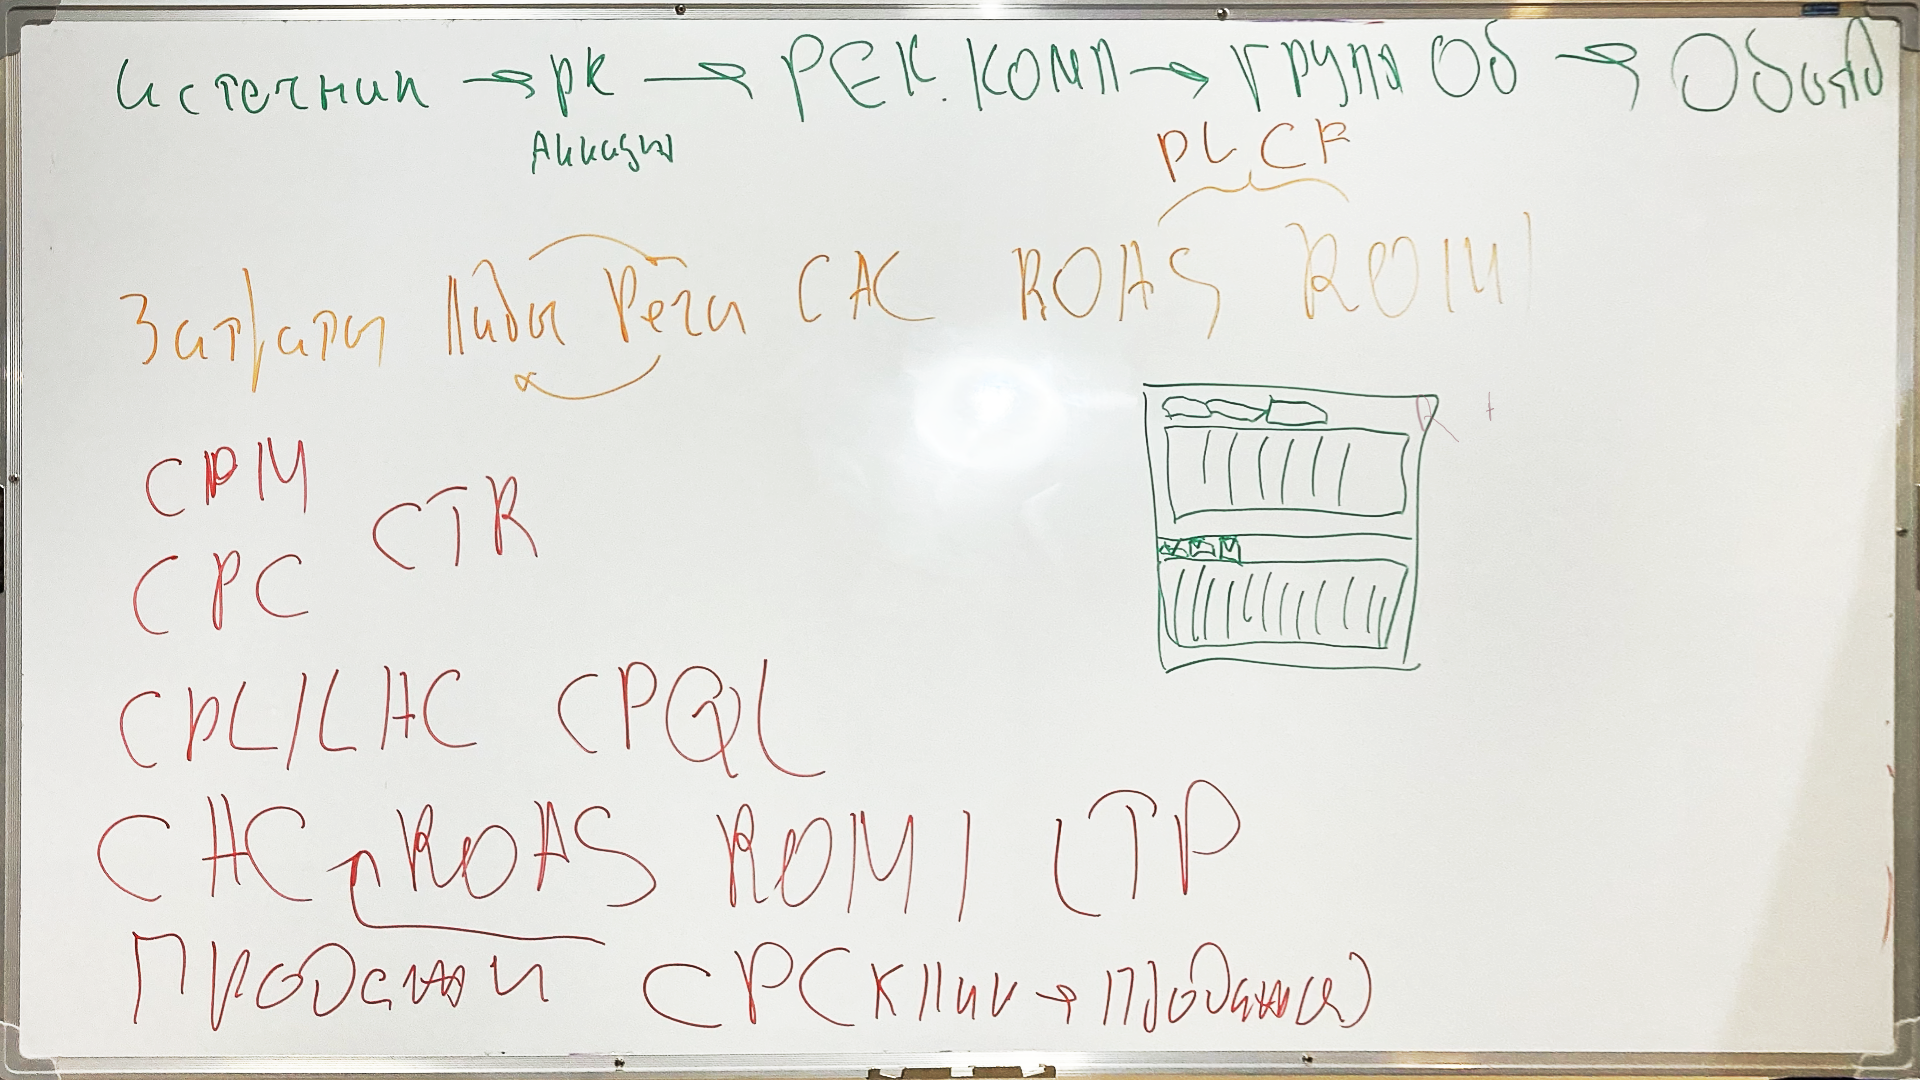 источник → рк → РЕК. КОМП → групп Об → Объяв
Аккаунт
PL CF
Затраты Лиды Реги CAC ROAS ROMI
CPM
CTR
CPC
CPL/LAC CPQL
CAC ROAS ROMI LTP
Продажи CPC (клик → продажа)